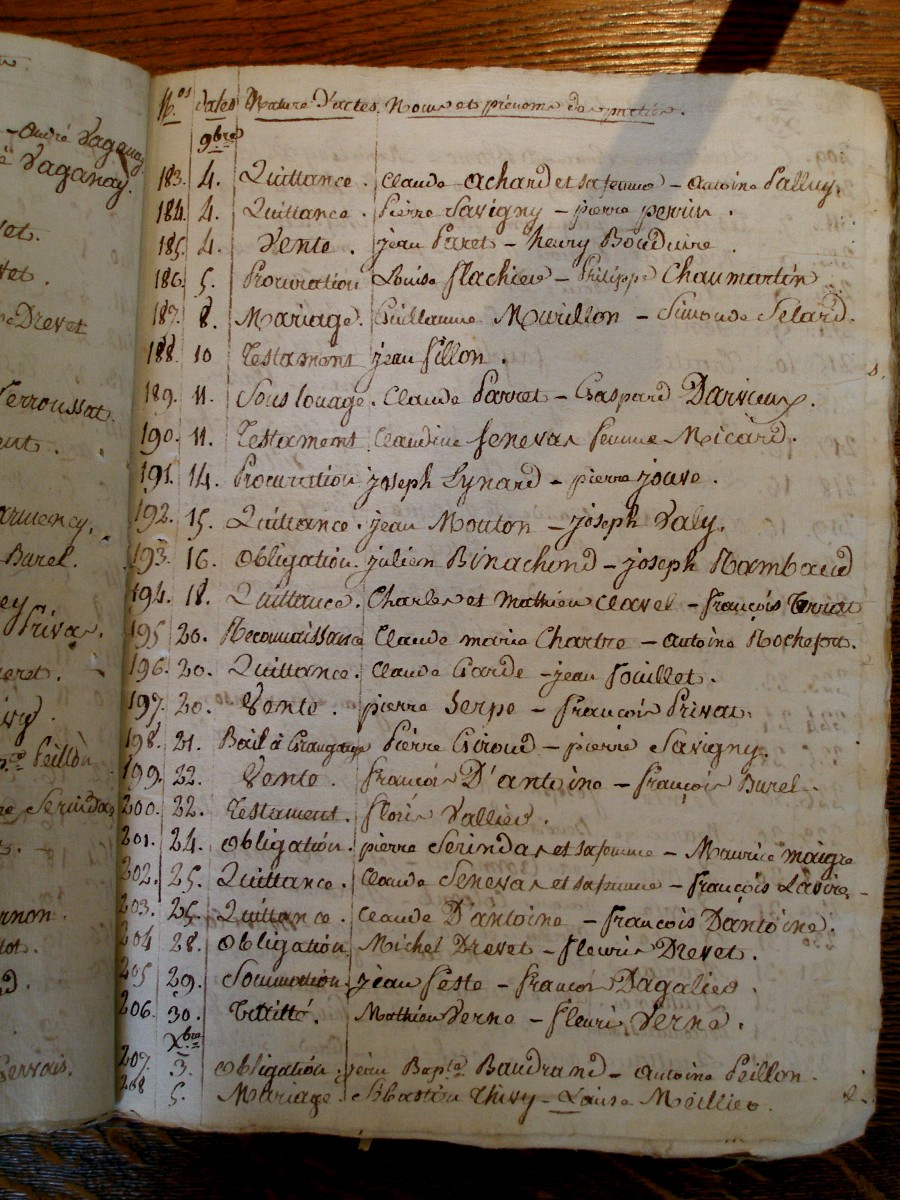 André Vaganay
Vaganay.
Drevet
Verroussat
Burel.
Privas.
Peillon
Serindas
Gervais.
N.os dates Nature d'actes. Noms et prénoms des parties.
9bre
183. 4. Quittance. Claude Achard et sa femme - Antoine Palluy.
184. 4. Quittance. Pierre Savigny - pierre perrin.
185. 4. Vente. jean Paret - henry Bouduire.
186. 5. Procuration Louise flachier - Philippe Chaumartin
187. 8. Mariage. Guillaume Murillon - Simonde Selard.
188. 10 Testament jean fillon.
189. 11. Sous louage. Claude Parret - Gaspard Darvieux.
190. 11. Testament Claudine senevas femme Micard.
191. 14. Procuration joseph Lynard - pierre jouve.
192. 15. Quittance. jean Mouton - joseph Valy.
193. 16. Obligation. julien Binachond - joseph Rambaud
194. 18. Quittance. Charles et Mathieu Clavel - françois
195 20. Reconnaissance Claude marie Chartre - Antoine Rochefort.
196. 20. Quittance. Claude Garde - jean fouillet.
197. 20. Vente. pierre Serpe - françois Privat.
198. 21. Bail à Grangeage Pierre Giroud - pierre Savigny.
199. 22. Vente. françois D'antoine - françois Burel.
200. 22. Testament. floris Vallier.
201. 24. Obligation. pierre Serindas et sa femme - Maurice maigre
202. 25. Quittance. Claude Senevas et sa femme - françois Lavire.
203. 25. Quittance. Claude D'antoine - françois Dantoine.
204 28. Obligation Michel Drevet - fleurie Drevet.
205 29. Sommation. jean feste - françois Dagalier.
206. 30. Mathieu Verne - fleuri Verne.
Xbre
207. 3. Obligation. jean Bapte Baudrand - Antoine Peillon.
208 5. Mariage. Sébastien Thivy - Louise Meillier.